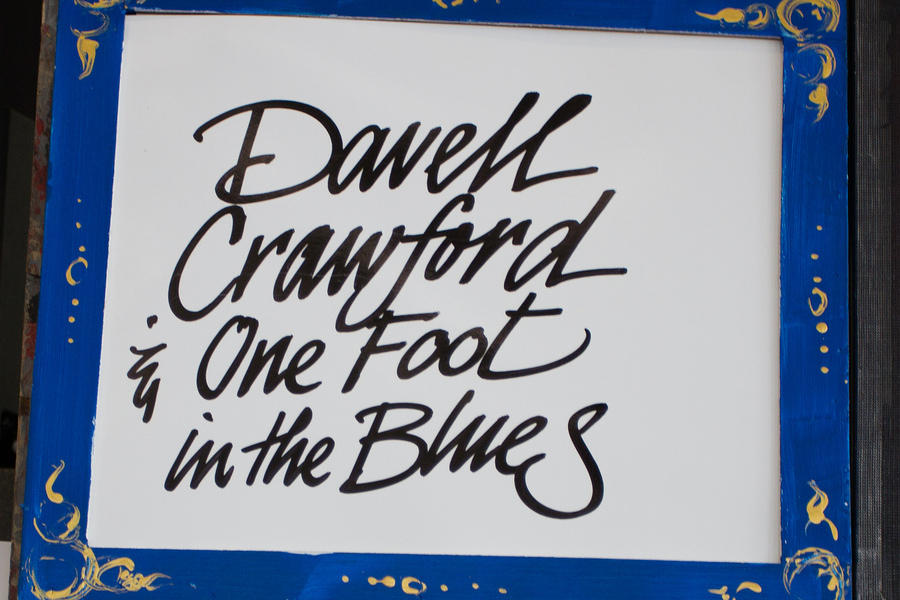 Davell
Crawford
& One Foot
in the Blues